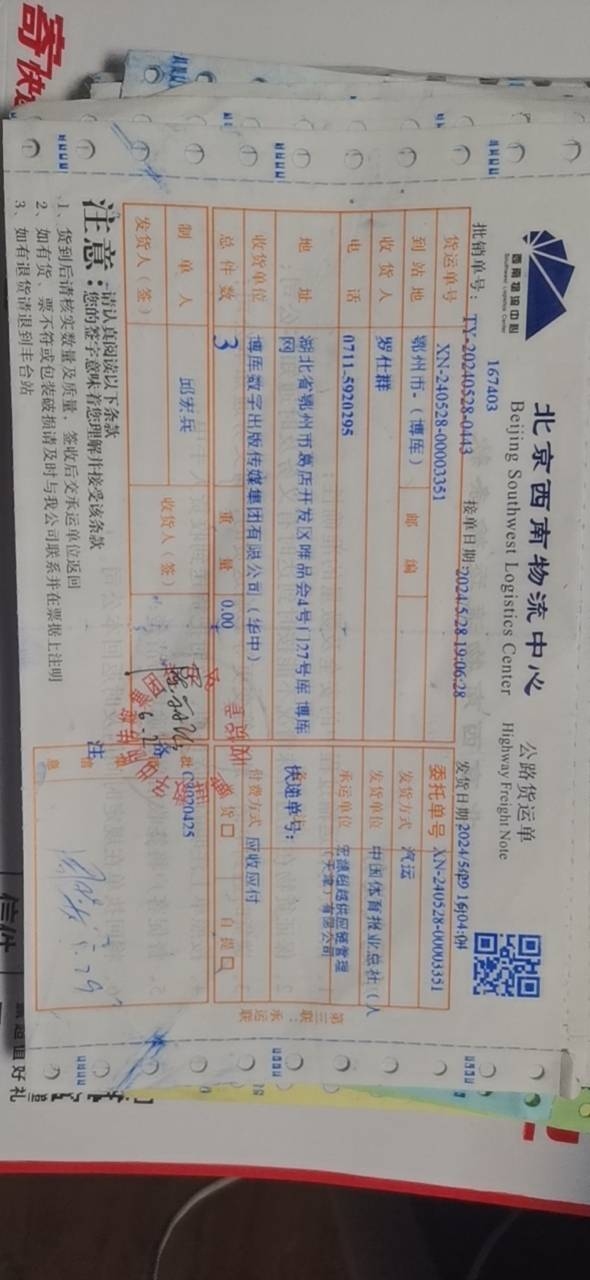 寄
快递
西南物流中心
Southwest Logistics Center
北京西南物流中心 公路货运单
Beijing Southwest Logistics Center Highway Freight Note
167403
批销单号： TY-20240528-0443 接单日期:2024/5/28 19:06:28 发货日期 2024/5/29 16:04:04
货运单号 XN-240528-00003351 委托单号 XN-240528-00003351
到站地 鄂州市-（博库） 邮编 发货方式 汽运
收货人 罗仕群 发货单位 中国体育报业总社（人
电话 0711-5920295 承运单位 宏德超越供应链管理
（天津）有限公司
地址 湖北省鄂州市葛店开发区唯品会4号门27号库 博库
网 快递单号：
收货单位 博库数字出版传媒集团有限公司（华中） 付费方式 应收应付
总件数 3 重量 0.00 货 自提
制单人 邱宏兵 批 C3020425
发货人（签） 收货人（签）
注
息
5.29
第三联：承运联
注意：请认真阅读以下条款
您的签字意味着您理解并接受该条款
1、货到后请核实数量及质量，签收后交承运单位返回
2、如有货、票不符或包装破损请及时与我公司联系并在票据上注明
3、如有退货请退到丰台站
信件